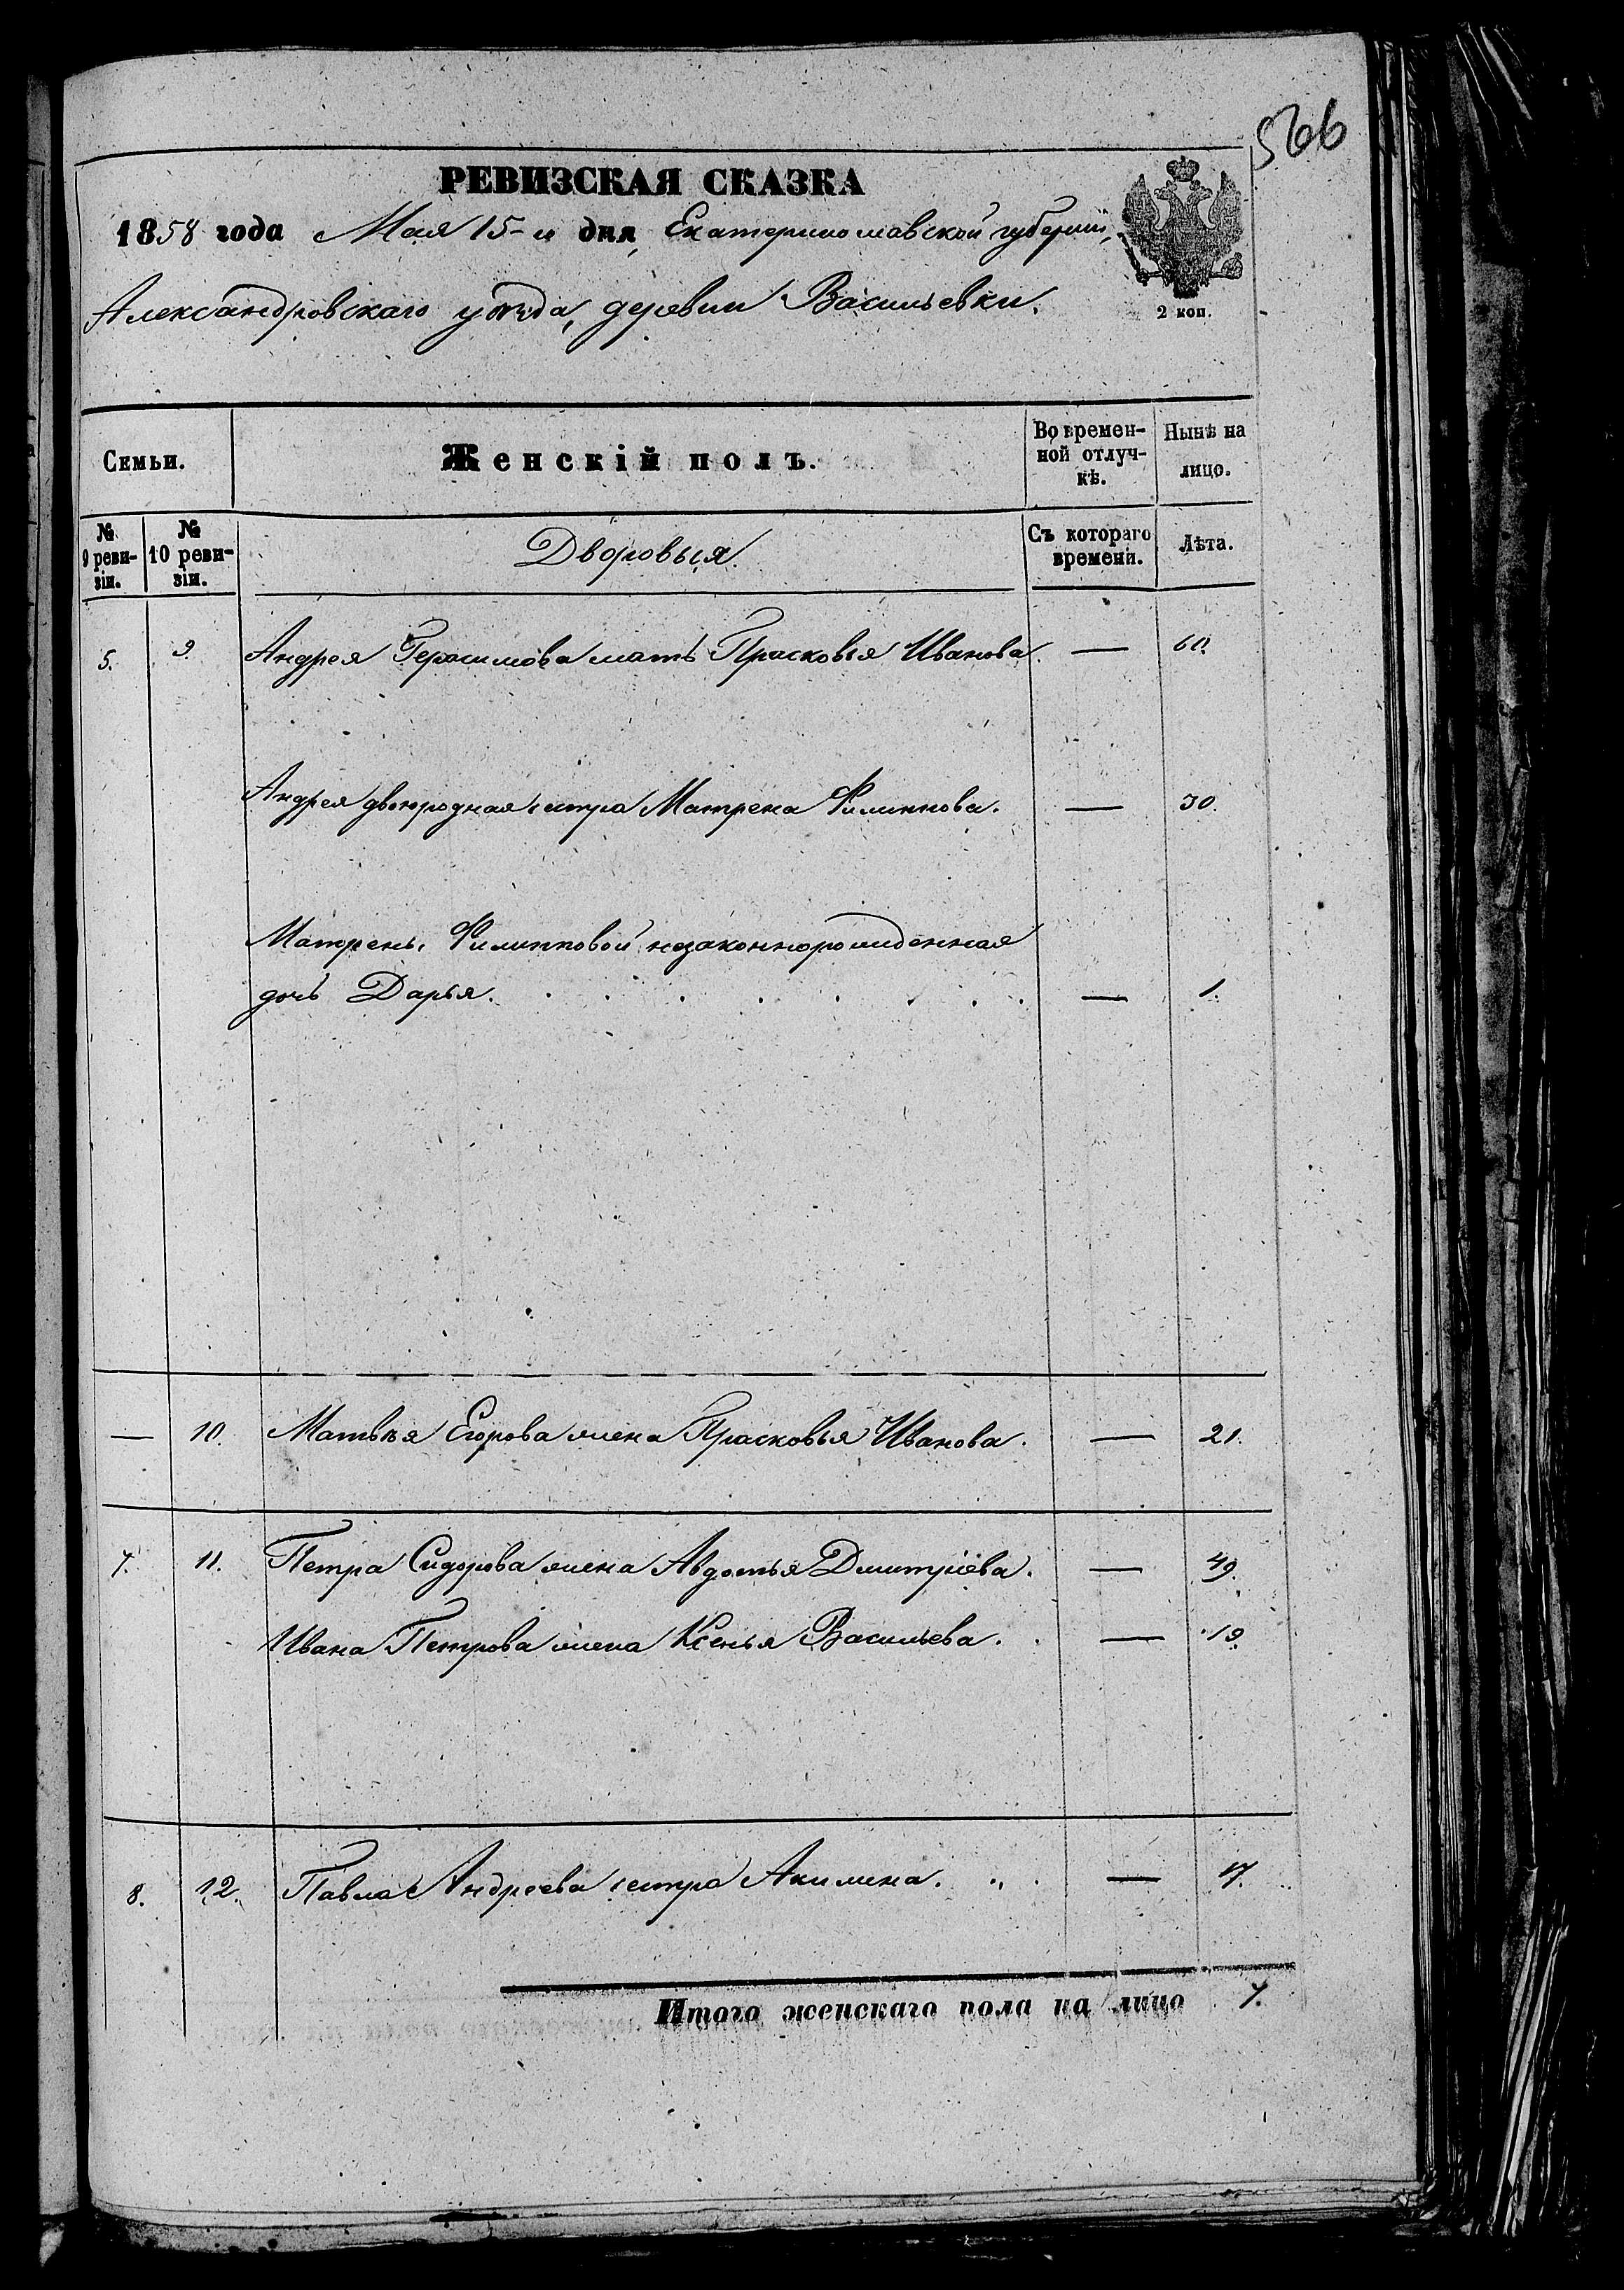 566
РЕВИЗСКАЯ СКАЗКА
1858 года Мая 15-го дня, Екатеринославской губерніи,
Александровскаго уѣзда, деревни Васильевки.
2 коп.
Семьи. Женскій полъ. Во времен-ной отлуч-кѣ. Нынѣ на лицо.
№ 9 реви-зіи. № 10 реви-зіи. Дворовыя. Съ котораго времени. Лѣта.
5. 9. Андрея Герасимова мать Прасковья Иванова. — 60.
Андрея двоюродная сестра Матрена Филиппова. — 30.
Матрены Филипповой незаконнорожденная
дочь Дарья. — 1.
— 10. Матвѣя Егорова жена Прасковья Иванова. — 21.
7. 11. Петра Сидорова жена Авдотья Дмитріева. — 49.
Ивана Петрова жена Ксенья Васильева. — 19.
8. 12. Павла Андреева сестра Акилина. — 17.
Итого женскаго пола на лицо 7.